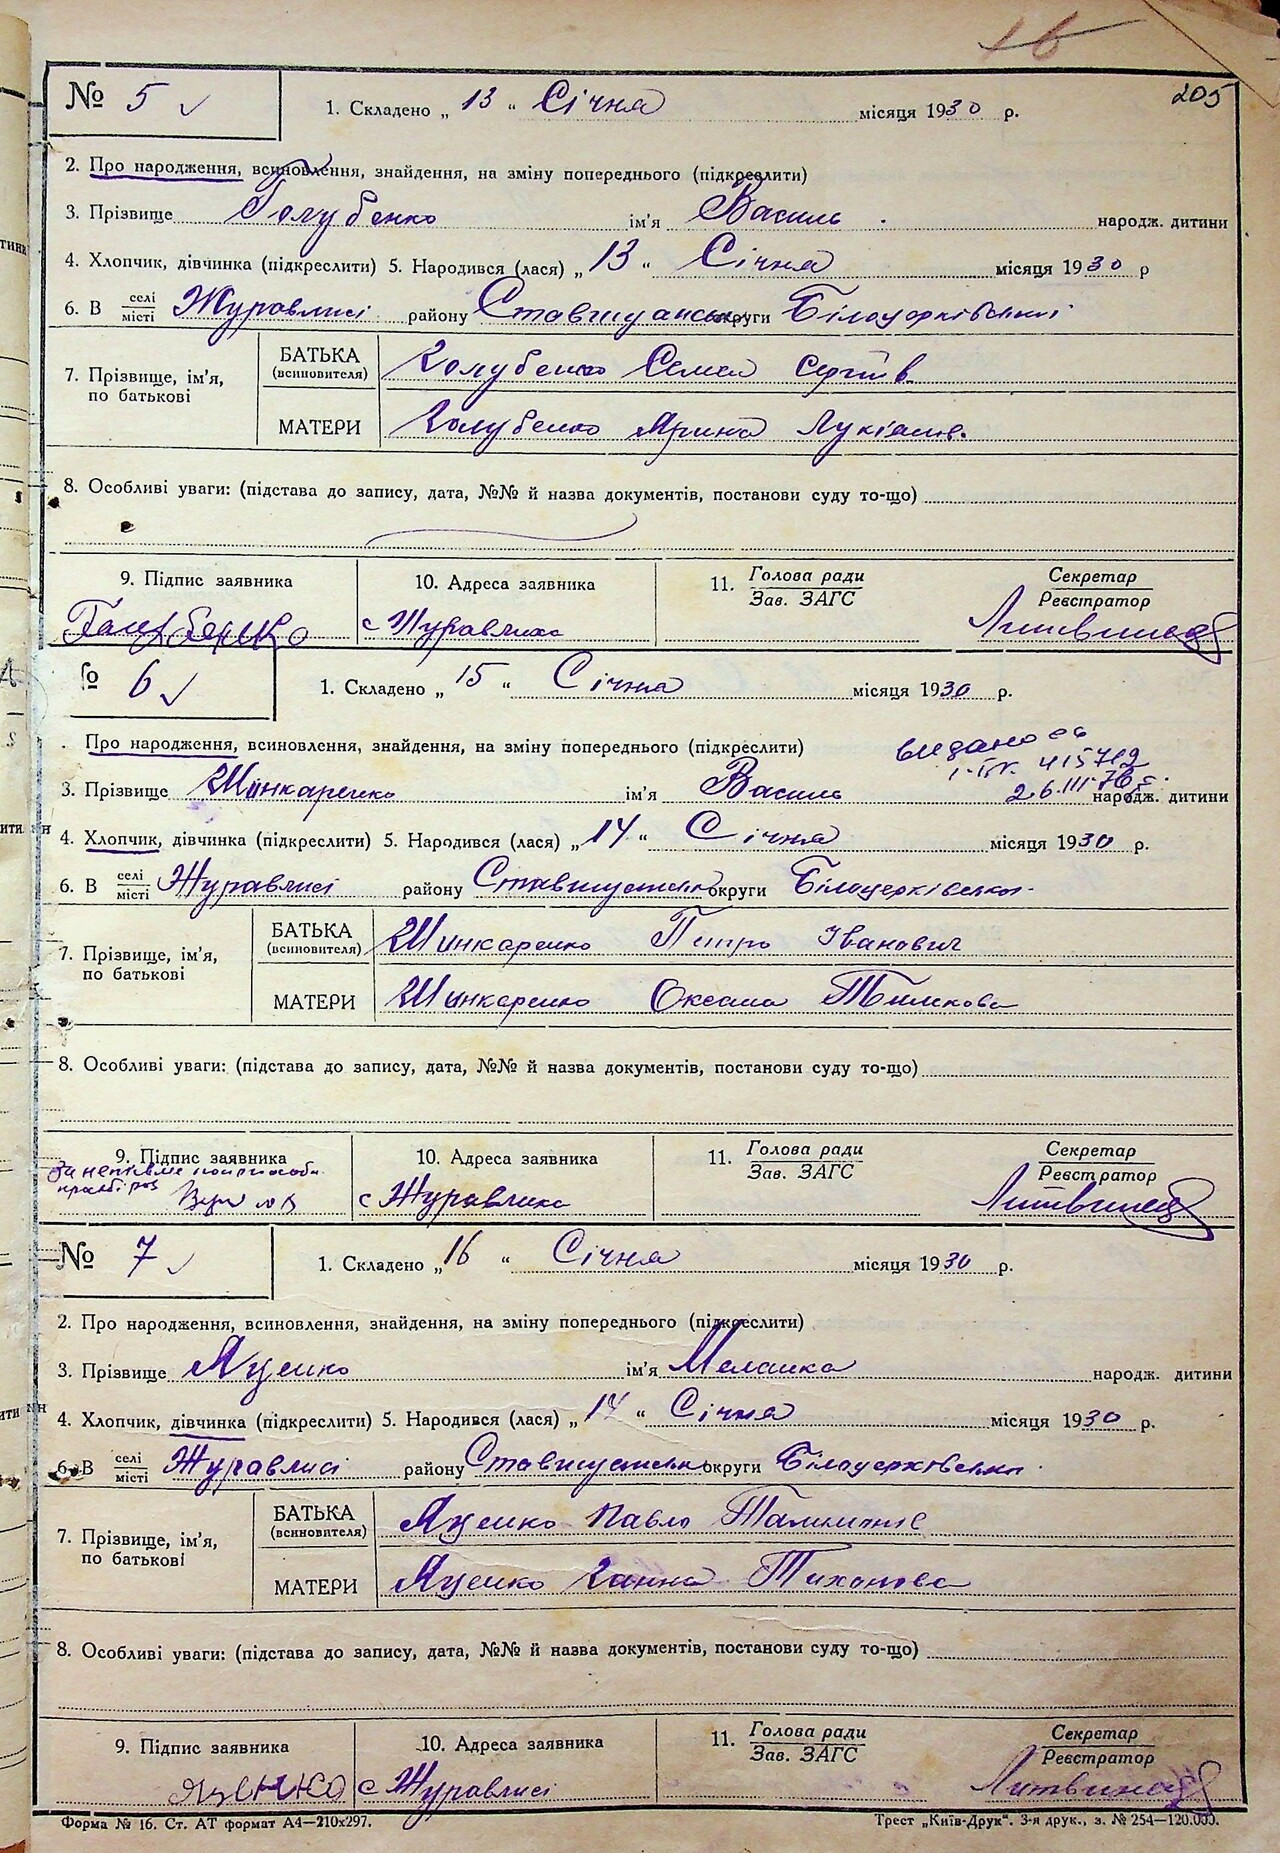 205
№ 5 ✓ 1. Складено „ 13 “ Січня місяця 1930 р.
2. Про народження, всиновлення, знайдення, на зміну попереднього (підкреслити)
3. Прізвище Голубенко ім'я Василь народж. дитини
4. Хлопчик, дівчинка (підкреслити) 5. Народився (лася) „ 13 “ Січня місяця 1930 р
6. В селі місті Журавлисі району Ставищанськ округи Білоцерківської
7. Прізвище, ім'я, по батькові
БАТЬКА (всиновителя) Голубенко Семен Сергіїв
МАТЕРИ Голубенко Ярина Лукіянів.
8. Особливі уваги: (підстава до запису, дата, №№ й назва документів, постанови суду то-що)
9. Підпис заявника 10. Адреса заявника 11. Голова ради Зав. ЗАГС Секретар Реєстратор
Голубенко с Журавлиха
№ 6 ✓ 1. Складено „ 15 “ Січня місяця 1930 р.
Про народження, всиновлення, знайдення, на зміну попереднього (підкреслити)
видано св
415712
26.III.76
3. Прізвище Шинкаренко ім'я Василь народж. дитини
4. Хлопчик, дівчинка (підкреслити) 5. Народився (лася) „ 14 “ Січня місяця 1930 р.
6. В селі місті Журавлисі району Ставищанськ округи Білоцерківської
7. Прізвище, ім'я, по батькові
БАТЬКА (всиновителя) Шинкаренко Петро Іванович
МАТЕРИ Шинкаренко Оксана
8. Особливі уваги: (підстава до запису, дата, №№ й назва документів, постанови суду то-що)
9. Підпис заявника 10. Адреса заявника 11. Голова ради Зав. ЗАГС Секретар Реєстратор
с Журавлиха
№ 7 ✓ 1. Складено „ 16 “ Січня місяця 1930 р.
2. Про народження, всиновлення, знайдення, на зміну попереднього (підкреслити)
3. Прізвище Яценко ім'я Меланка народж. дитини
4. Хлопчик, дівчинка (підкреслити) 5. Народився (лася) „ 14 “ Січня місяця 1930 р.
6. В селі місті Журавлисі району Ставищанськ округи Білоцерківської
7. Прізвище, ім'я, по батькові
БАТЬКА (всиновителя) Яценко Павло
МАТЕРИ Яценко Ганна Тихонова
8. Особливі уваги: (підстава до запису, дата, №№ й назва документів, постанови суду то-що)
9. Підпис заявника 10. Адреса заявника 11. Голова ради Зав. ЗАГС Секретар Реєстратор
Яценко с Журавлисі
Форма № 16. Ст. АТ формат А4—210х297. Трест „Київ-Друк“. 3-я друк., з. № 254—120.000.